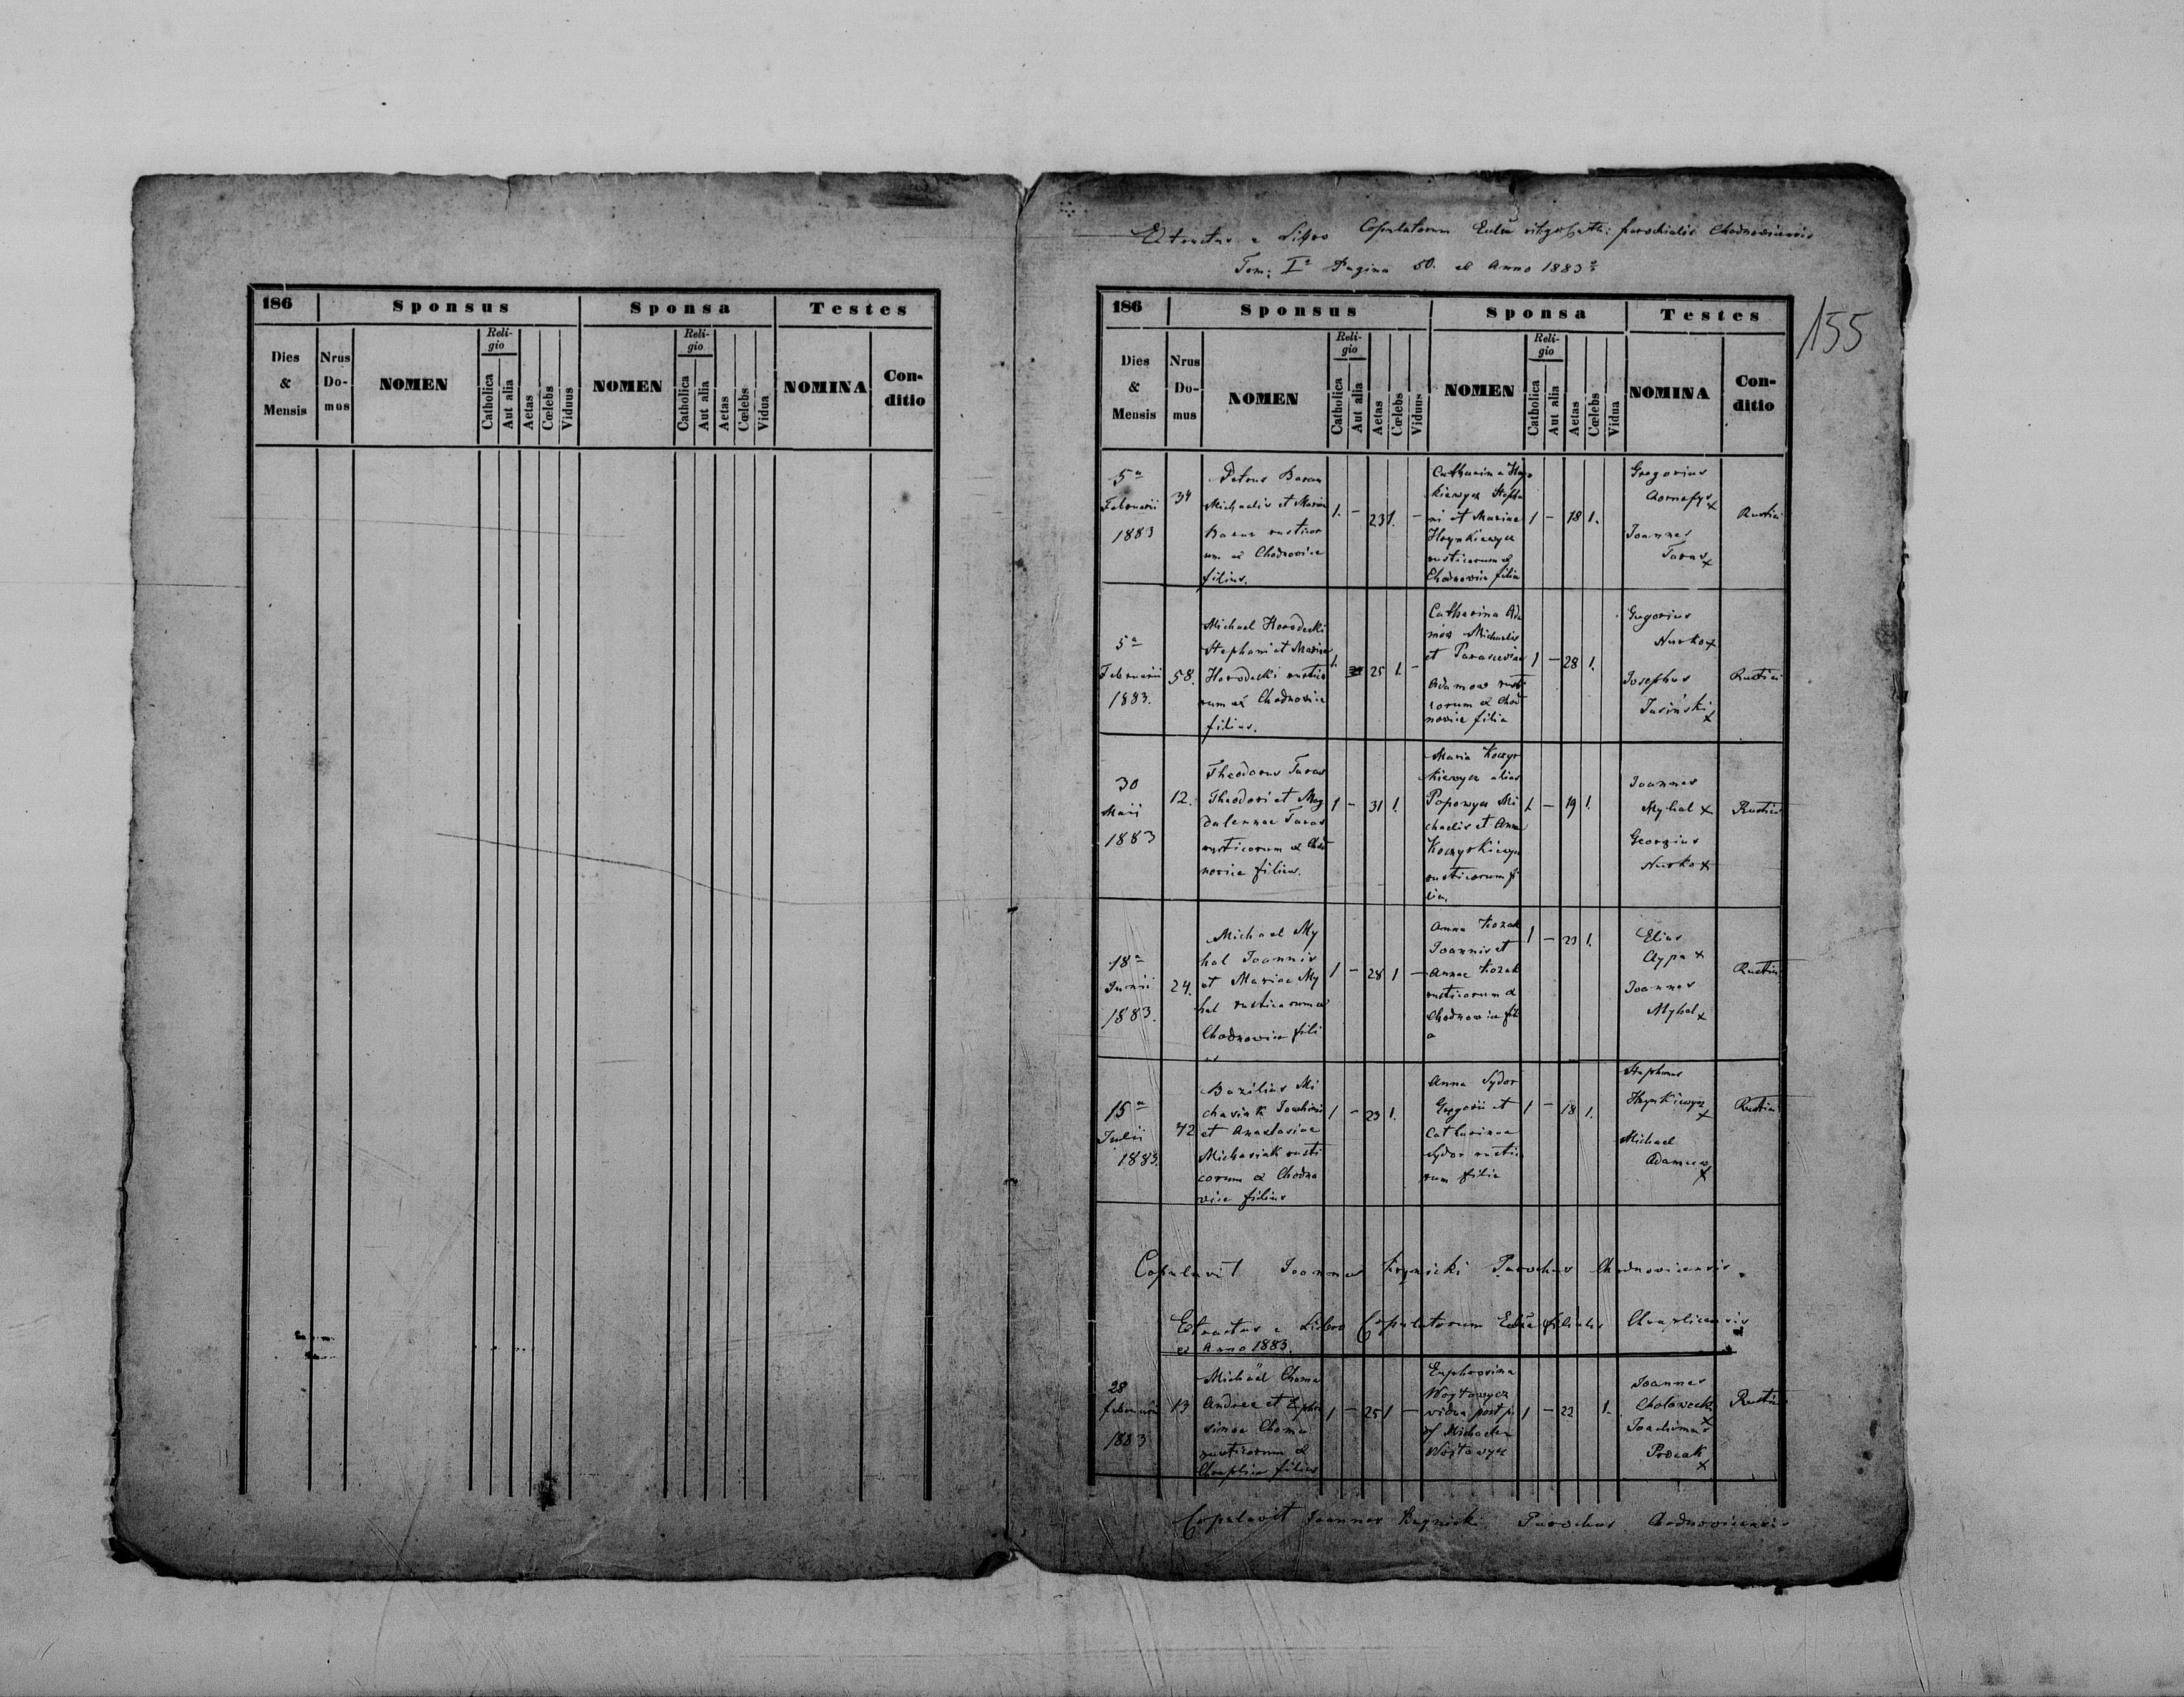 186
Sponsus
Sponsa
Testes
Dies & Mensis
Nrus Do- mus
NOMEN
Reli- gio
Catholica
Aut alia
Aetas
Cœlebs
Viduus
NOMEN
Reli- gio
Catholica
Aut alia
Aetas
Cœlebs
Vidua
NOMINA
Con- ditio
Extractus e Libro Copulatorum parochialis Chodnoviciensis
Tom: I Pagina 50. ex Anno 1883
155
186
Sponsus
Sponsa
Testes
Dies & Mensis
Nrus Do- mus
NOMEN
Reli- gio
Catholica
Aut alia
Aetas
Cœlebs
Viduus
NOMEN
Reli- gio
Catholica
Aut alia
Aetas
Cœlebs
Vidua
NOMINA
Con- ditio
5a
Februarii
1883
34
Petrus Baran
Michaelis et Mariae
Baran rusticor
um ex Chodnovice
filius.
1. - 23 1. -
Catharina Hryn
kiewycz Stepha
ni et Mariae
Hrynkiewycz
rusticorum ex
Chodnovice filia
1 - 18 1.
Gregorius
x
Joannes
Taras x
Rustici
5a
Februarii
1883.
58.
Michael Horodecki
Stephani et Mariae
Horodecki rustico
rum ex Chodnovice
filius.
1. 25 1. -
Catharina Ada
mow Michaelis
et Parasceviae
Adamow rusti
corum ex Chod
novice filia
1 - 28 1.
Gregorius
Nurko x
Josephus
Jasinski
x
Rustici
30
Maii
1883
12.
Theodorus Taras
Theodori et Mag
dalennae Taras
rusticorum ex Chod
novice filius.
1 - 31 1.
Maria Koczyr
kiewycz alias
Popowycz Mi
chaelis et Anna
Koczyrkiewycz
rusticorum fi
lia.
1. - 19 1.
Joannes
Myhal x
Georgius
Nurko x
Rustici
18a
Junii
1883.
24.
Michael My
hal Joannis
et Mariae My
hal rusticorum ex
Chodnovice fili
us
1 - 28 1 -
Anna Kozak
Joannis et
Annae Kozak
rusticorum ex
Chodnovice fili
a
1 - 23 1.
Elias
Cypa x
Joannes
Myhal x
Rustici
15a
Julii
1883.
72
Bazilius Mi
chasiak Joachimi
et Anastasiae
Michasiak rusti
corum ex Chodno
vice filius
1 - 23 1.
Anna Sydor
Gregorii et
Catharinae
Sydor rustico
rum filia
1 - 18 1.
Stephanus
Hrynkiewycz
x
Michael
Adamow
x
Rustici
Copulavit Joannes Krynicki Parochus Chodnovicensis.
Extractus e Libro Copulatorum filialis Chraplicensis
ex Anno 1883.
28
februarii
1883
13
Michaël Choma
Andreae et Euphro
sinae Choma
rusticorum ex
Chraplice filius
1 - 25 1 -
Euphrosina
Wojtowycz
vidua post
Michaelem
Wojtowycz
1 - 22 1.
Joannes
x
Joachimus
x
Rustici
Copulavit Joannes Krynicki Parochus Chodnovicensis